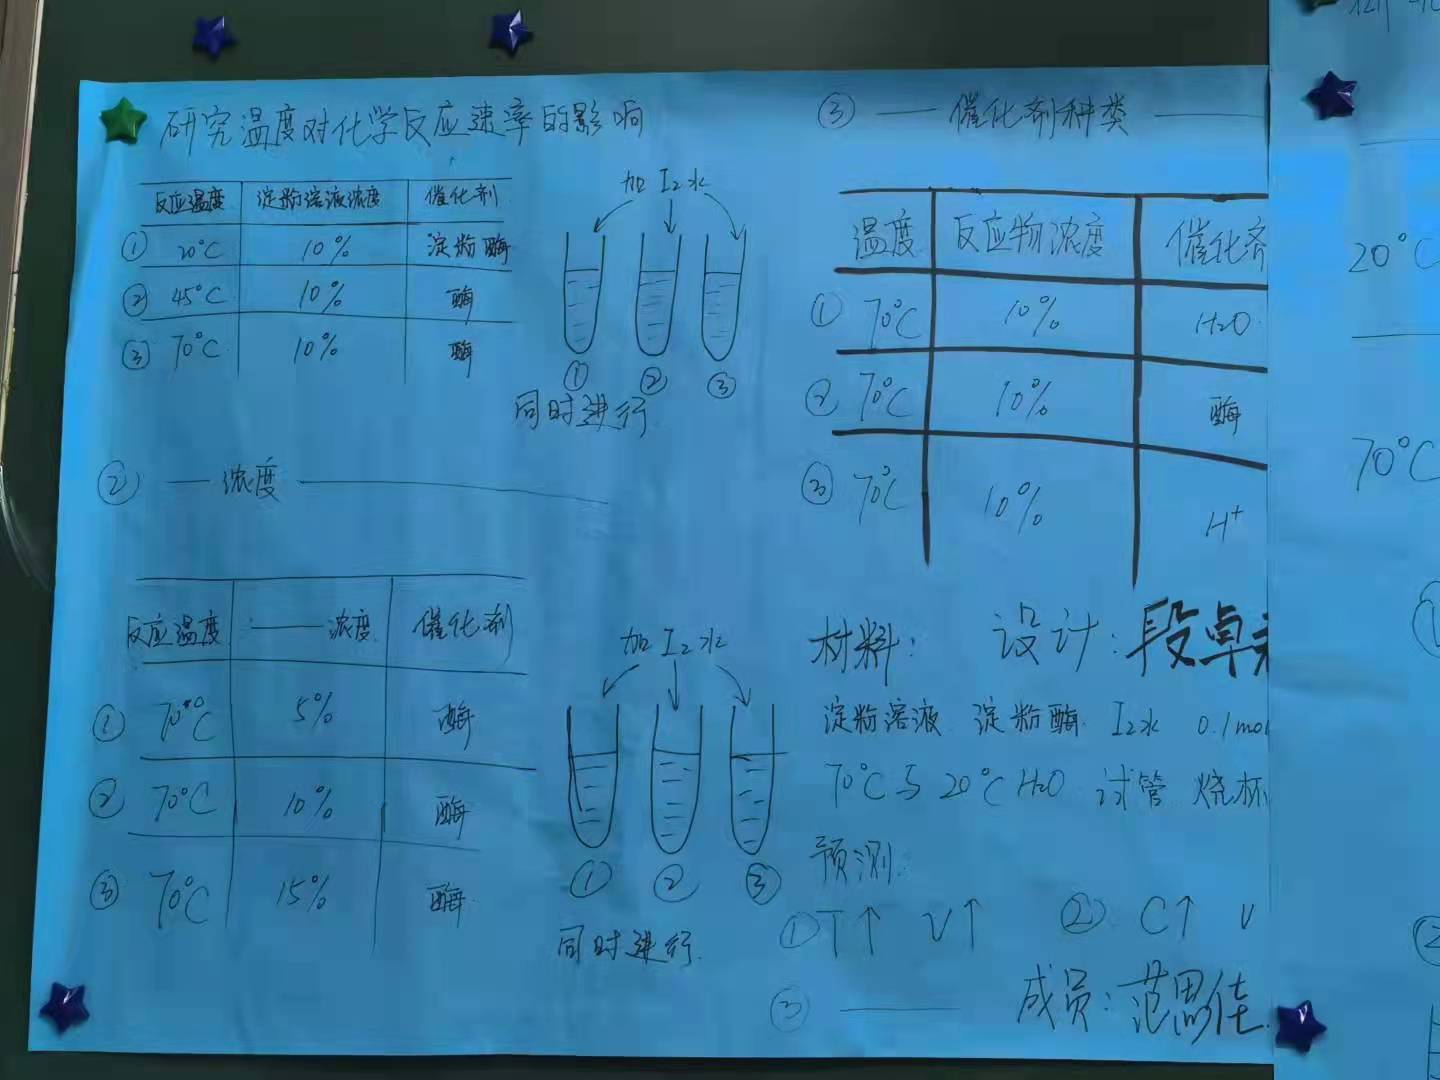 研究温度对化学反应速率的影响
反应温度 淀粉溶液浓度 催化剂
① 20°C 10% 淀粉酶
② 45°C 10% 酶
③ 70°C 10% 酶
加 I₂水
① ② ③
同时进行
② —— 浓度 ——
反应温度 —— 浓度 催化剂
① 70°C 5% 酶
② 70°C 10% 酶
③ 70°C 15% 酶
加 I₂水
① ② ③
同时进行
③ —— 催化剂种类 ——
温度 反应物浓度 催化剂
① 70°C 10% H₂O
② 70°C 10% 酶
③ 70°C 10% H⁺
材料: 设计: 段卓
淀粉溶液 淀粉酶 I₂水 0.1mol
70°C与20°C H₂O 试管 烧杯
预测:
①T↑ V↑ ② C↑ V
③ ——
成员: 范思佳
20°C
70°C
①
②